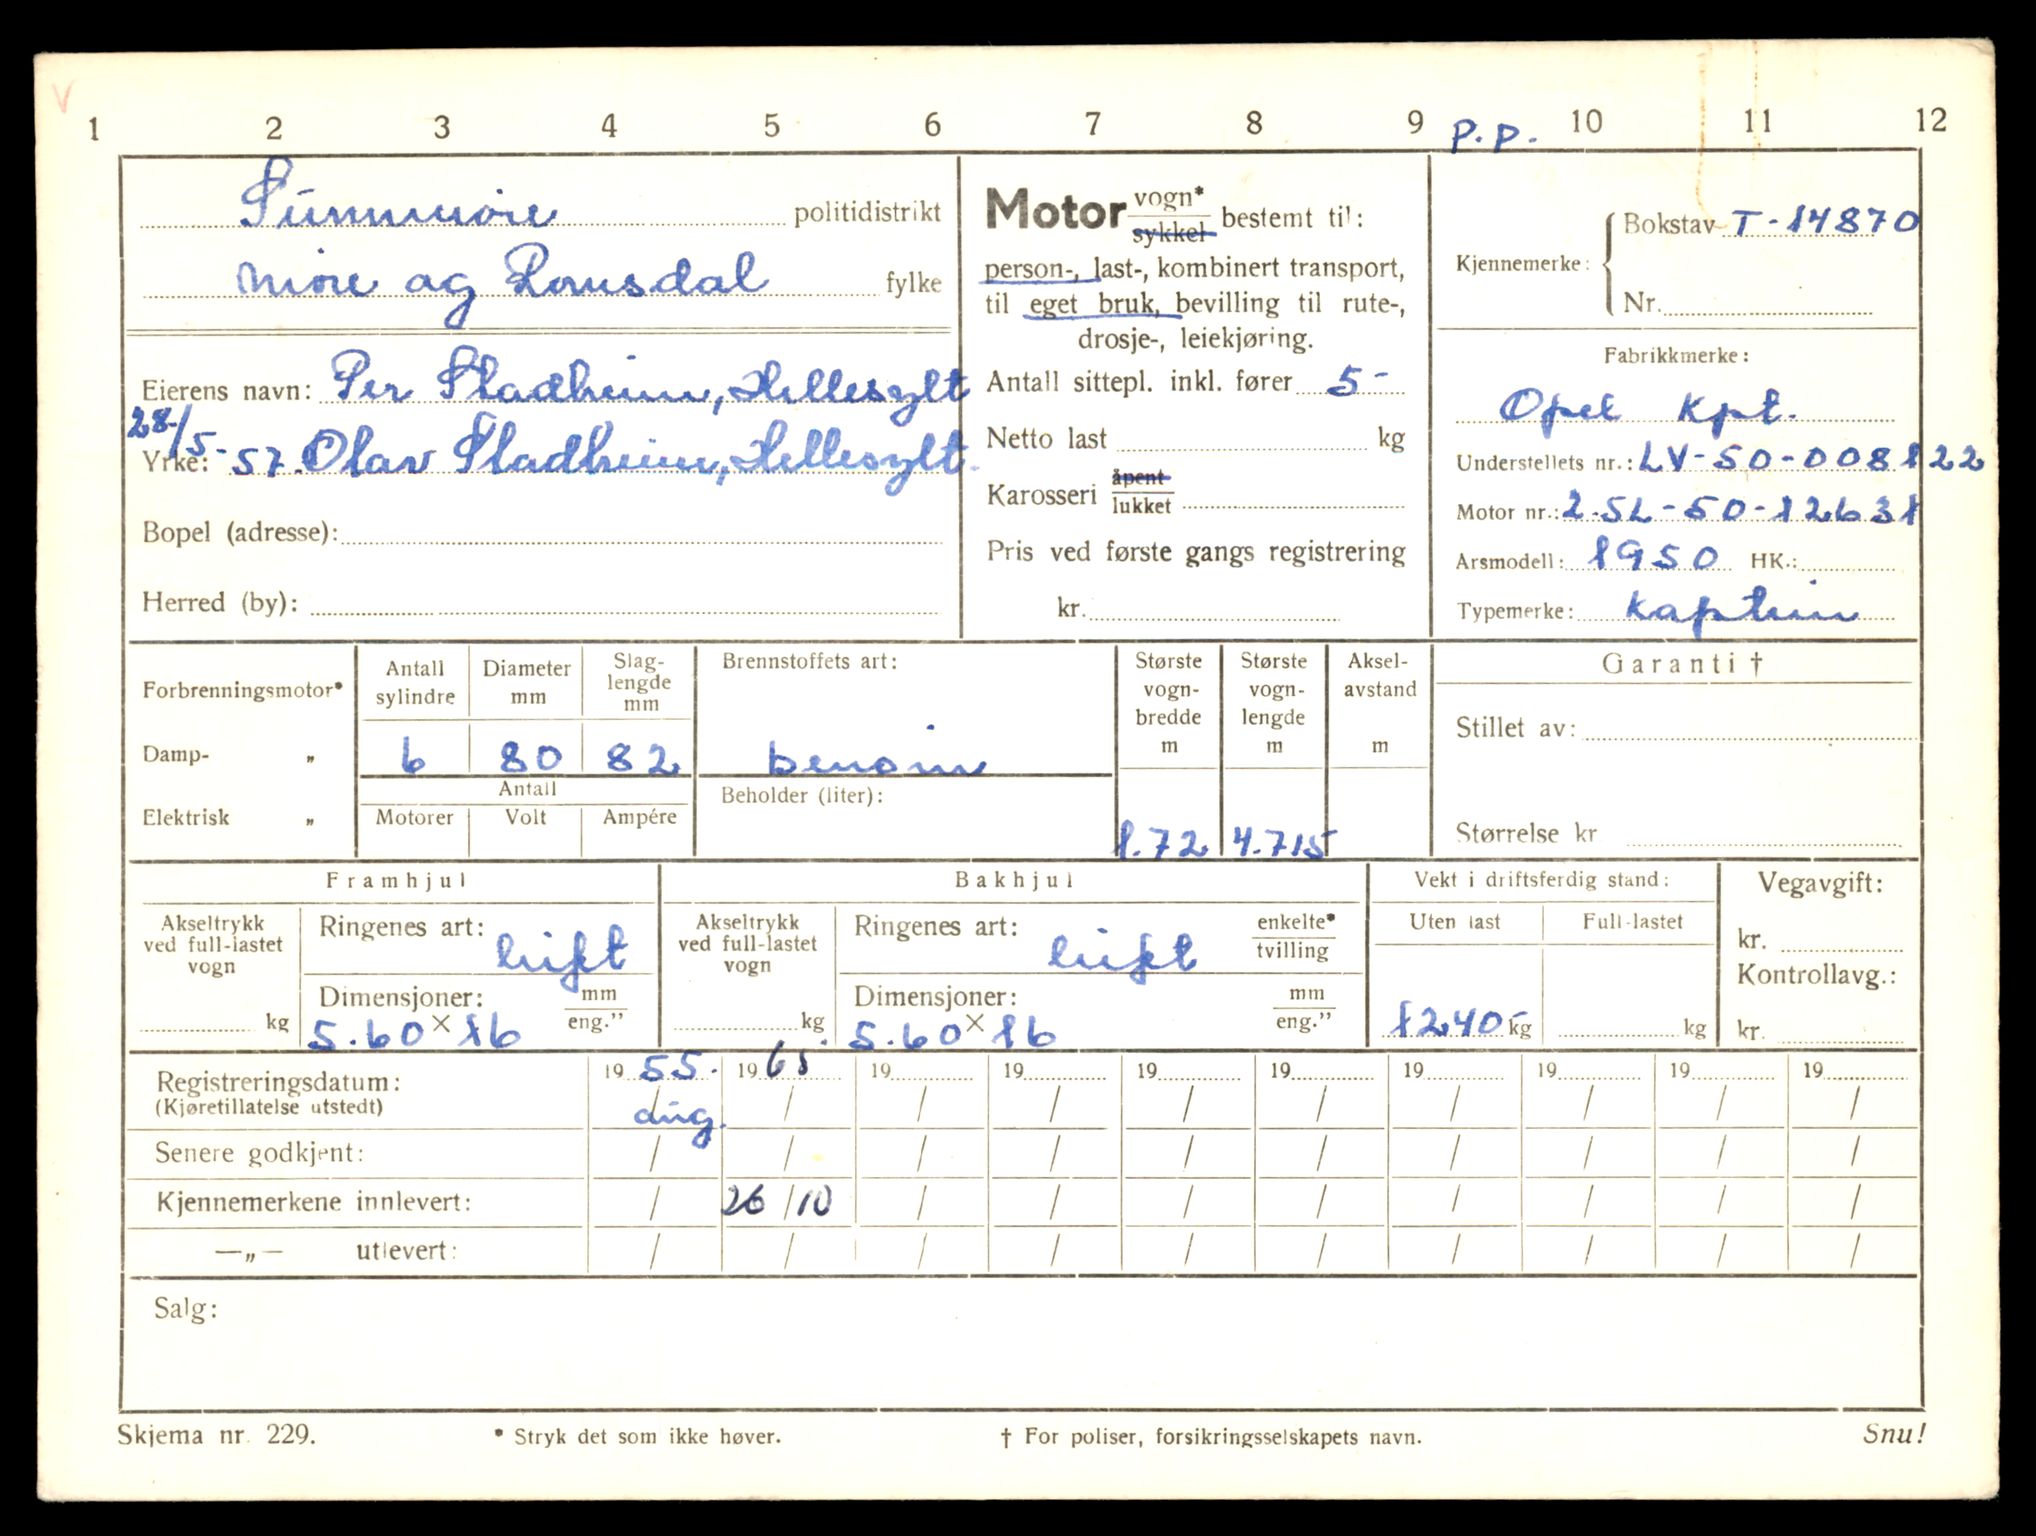 1 2 3 4 5 6 7 8 9 P.P. 10 11 12
Sunnmøre politidistrikt
Møre og Romsdal fylke
Eierens navn: Per Stadheim, Hellesylt
28/5-57. Olav Stadheim, Hellesylt.
Yrke:
Bopel (adresse):
Herred (by):
Motor vogn* / sykkel bestemt til:
person-, last-, kombinert transport,
til eget bruk, bevilling til rute-,
drosje-, leiekjøring.
Antall sittepl. inkl. fører 5-
Netto last kg
Karosseri åpent / lukket
Pris ved første gangs registrering
kr.
Kjennemerke: Bokstav T-14870
Nr.
Fabrikkmerke:
Opel Kpt.
Understellets nr.: LV-50-008122
Motor nr.: 2.5L-50-12631
Arsmodell: 1950 HK.:
Typemerke: Kaptein
Forbrenningsmotor*
Damp- „
Elektrisk „
Antall sylindre
Diameter mm
Slag-lengde mm
6 80 82
Antall
Motorer Volt Ampére
Brennstoffets art:
bensin
Beholder (liter):
Største vogn-bredde m
1.72
Største vogn-lengde m
4.715
Aksel-avstand m
Garanti †
Stillet av:
Størrelse kr
Framhjul
Akseltrykk ved full-lastet vogn
kg
Ringenes art: luft
Dimensjoner: mm / eng."
5.60 × 16
Bakhjul
Akseltrykk ved full-lastet vogn
kg
Ringenes art: luft enkelte* / tvilling
Dimensjoner: mm / eng."
5.60 × 16
Vekt i driftsferdig stand:
Uten last Full-lastet
1240- kg kg
Vegavgift:
kr.
Kontrollavg.:
kr.
Registreringsdatum: 19 55. 19 65 19 19 19 19 19 19 19 19
(Kjøretillatelse utstedt) aug. / / / / / / / / /
Senere godkjent: / / / / / / / / / /
Kjennemerkene innlevert: / 26/10 / / / / / / / /
—„— utlevert: / / / / / / / / / /
Salg:
Skjema nr. 229.
* Stryk det som ikke høver.
† For poliser, forsikringsselskapets navn.
Snu!